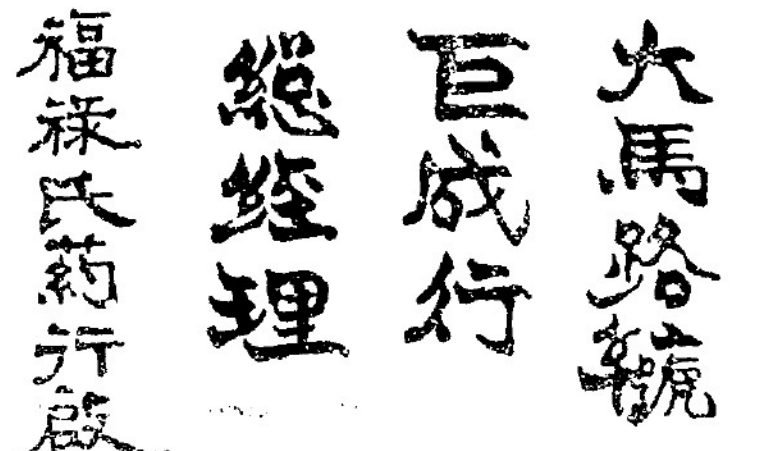 大馬路號
巨成行
總經理
福祿氏葯行啟